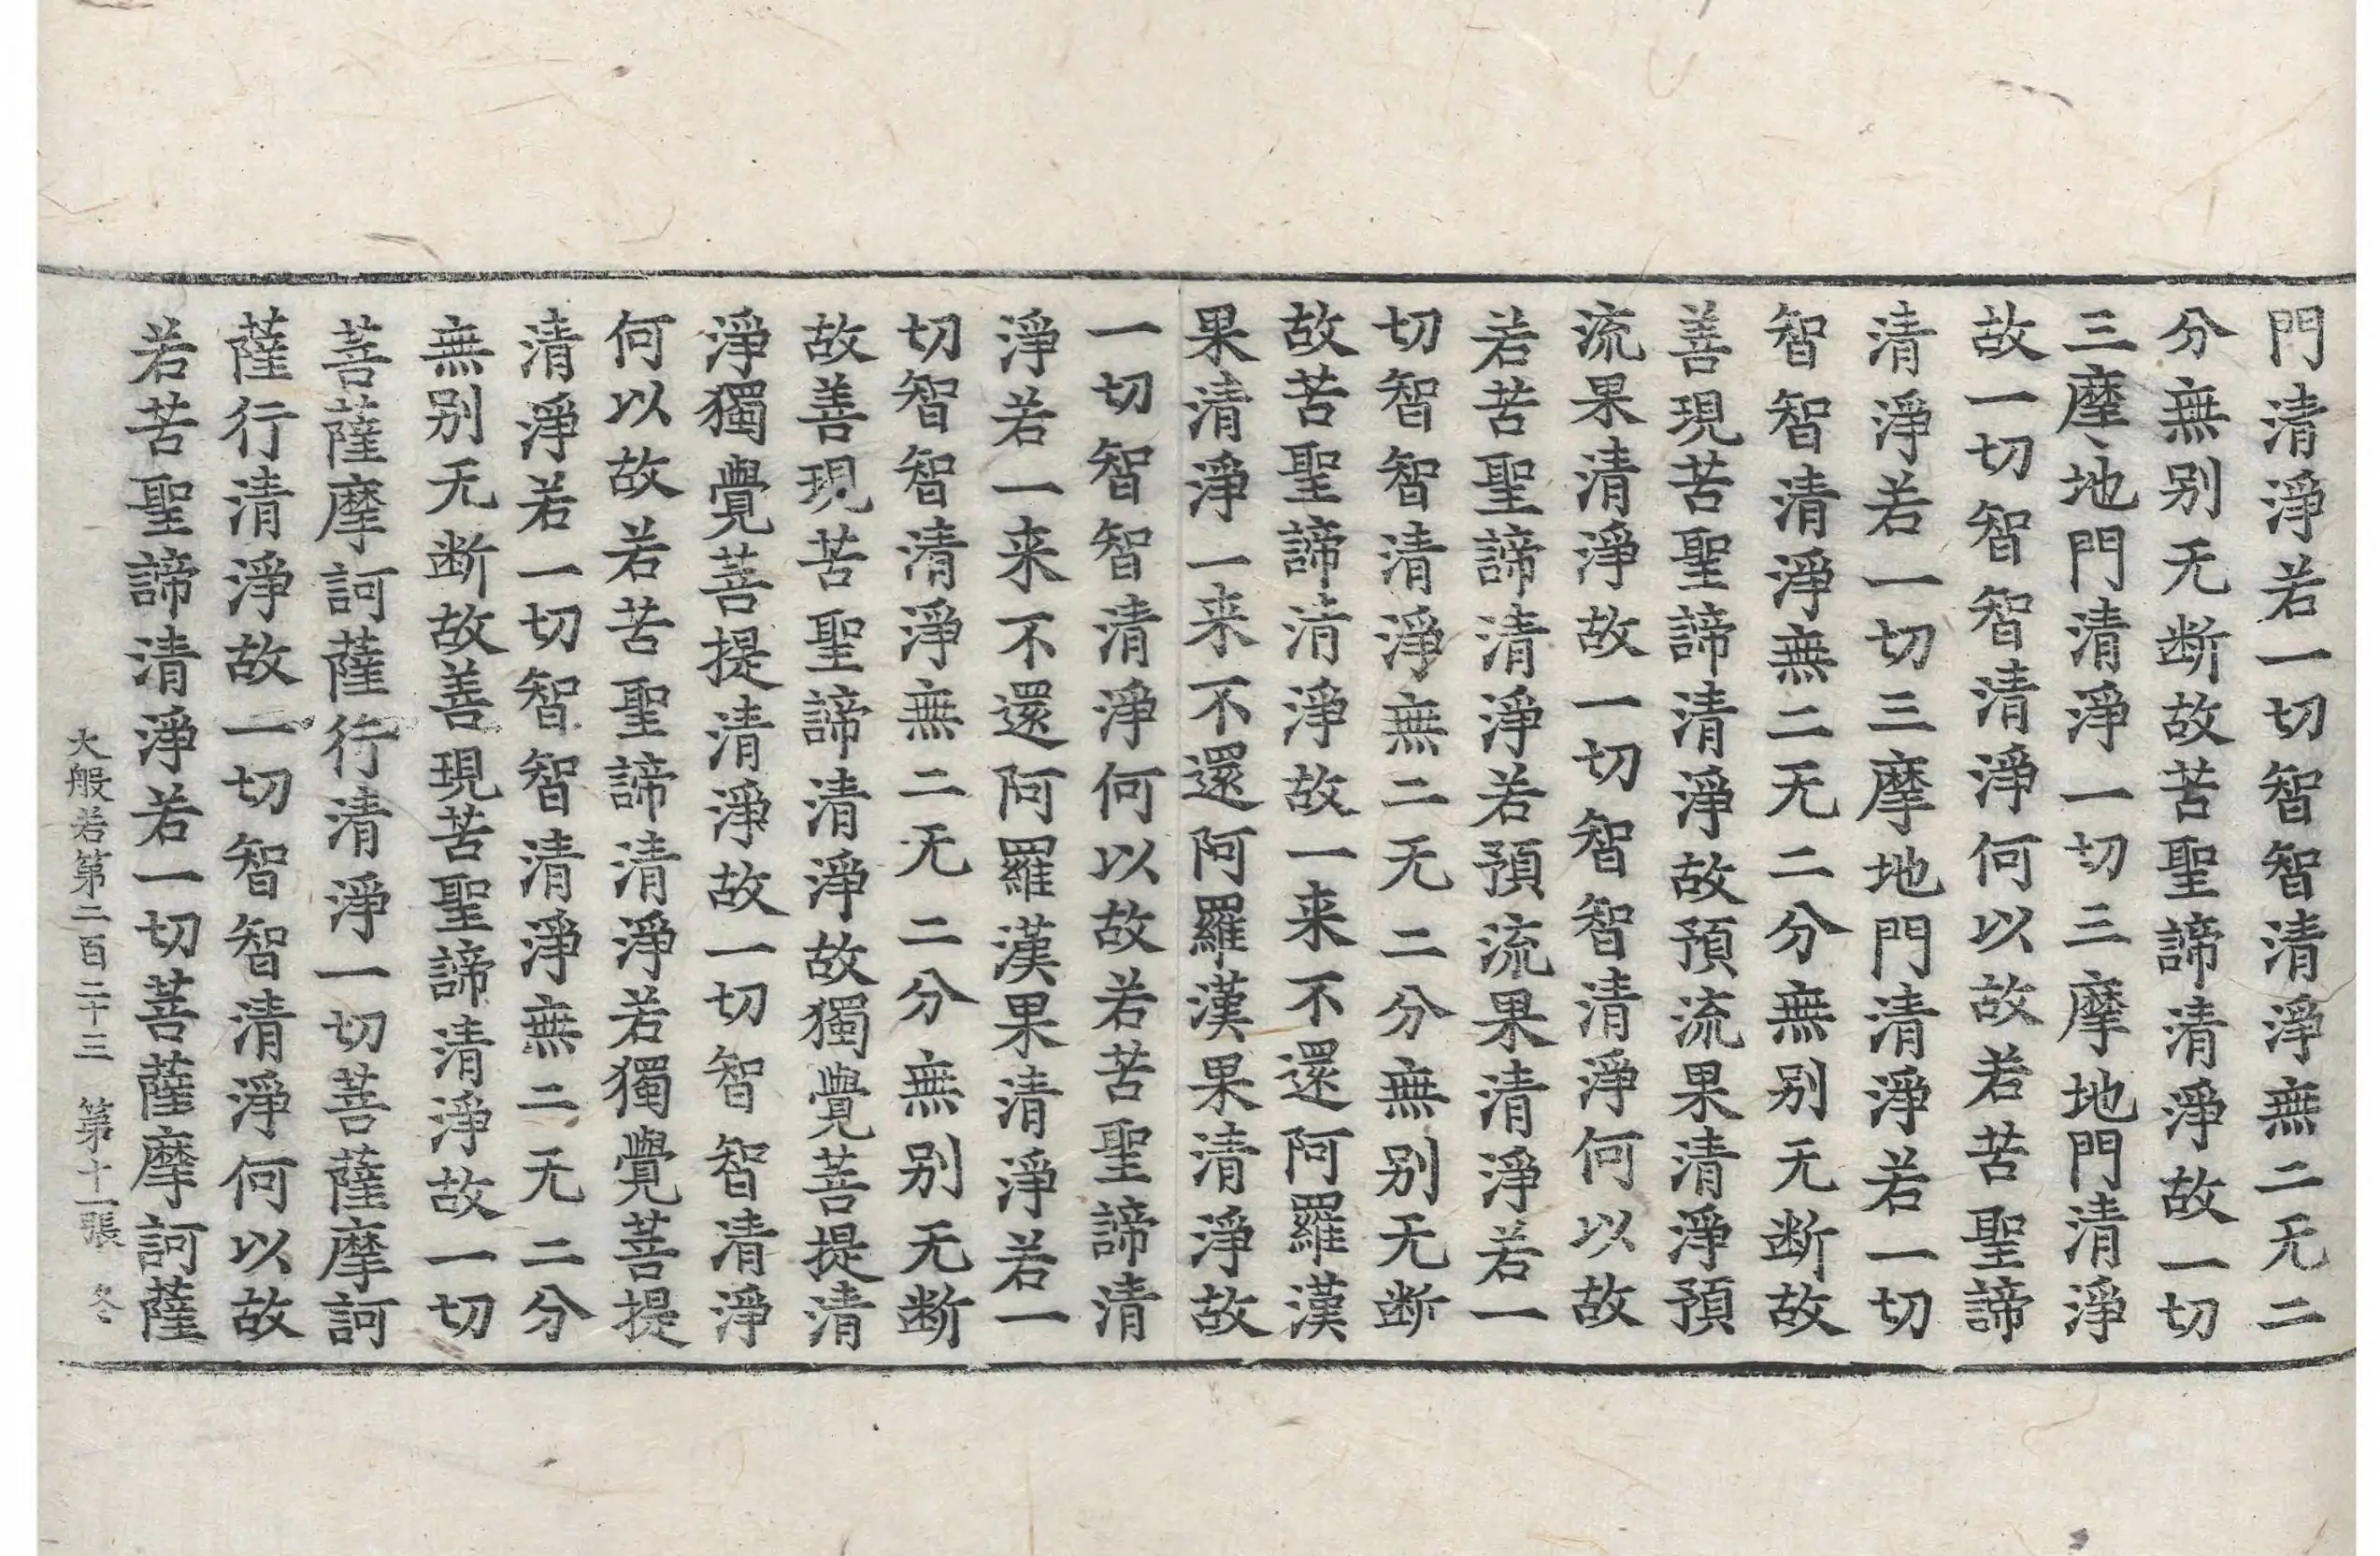 門清淨若一切智智清淨無二无二
分無别无断故苦聖諦清淨故一切
三摩地門清淨一切三摩地門清淨
故一切智智清淨何以故若苦聖諦
清淨若一切三摩地門清淨若一切
智智清淨無二无二分無别无断故
善現苦聖諦清淨故預流果清淨預
流果清淨故一切智智清淨何以故
若苦聖諦清淨若預流果清淨若一
切智智清淨無二无二分無别无断
故苦聖諦清淨故一来不還阿羅漢
果清淨一来不還阿羅漢果清淨故
一切智智清淨何以故若苦聖諦清
淨若一来不還阿羅漢果清淨若一
切智智清淨無二无二分無别无断
故善現苦聖諦清淨故獨覺菩提清
淨獨覺菩提清淨故一切智智清淨
何以故若苦聖諦清淨若獨覺菩提
清淨若一切智智清淨無二无二分
無别无断故善現苦聖諦清淨故一切
菩薩摩訶薩行清淨一切菩薩摩訶
薩行清淨故一切智智清淨何以故
若苦聖諦清淨若一切菩薩摩訶薩
大般若第二百二十三　第十一張　冬